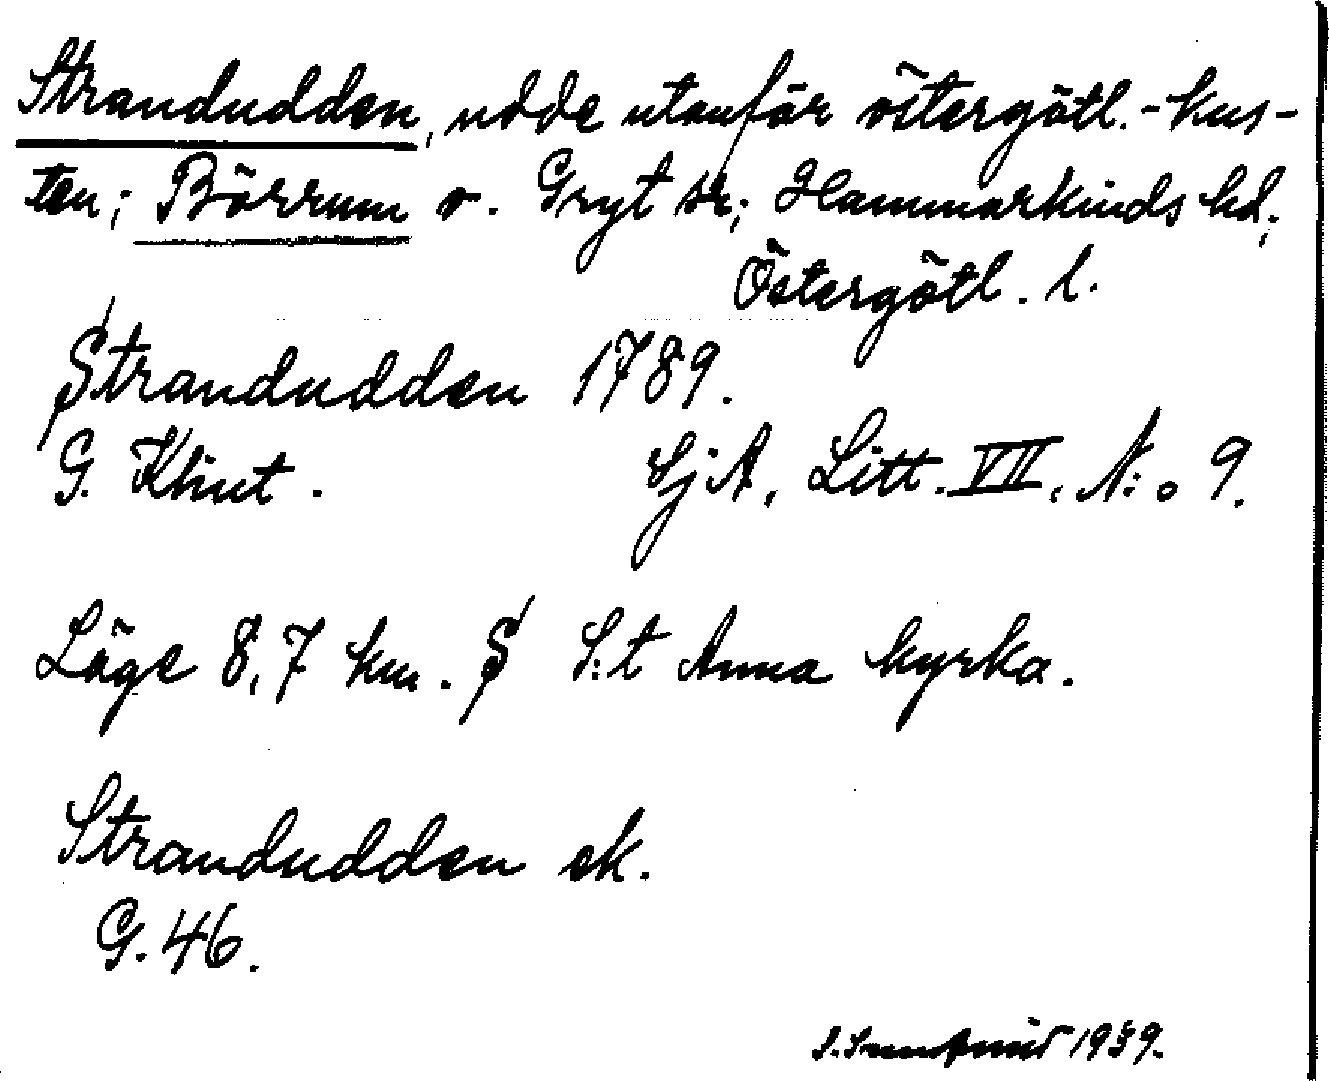 Strandudden, udde utanför östergötl.-kus-
ten; Börrum o. Gryt sr; Hammarkinds hd;
Östergötl. l.
Strandudden 1789.
G. Klint. SjA, Litt. VII, N:o 9.
Läge 8,7 km. S S:t Anna kyrka.
Strandudden ek.
G. 46.
1939.